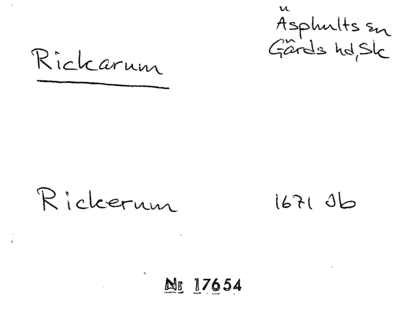 Rickarum
Äsphults sn
Gärds hd, Sk
Rickerum 1671 Jb
Nr 17654